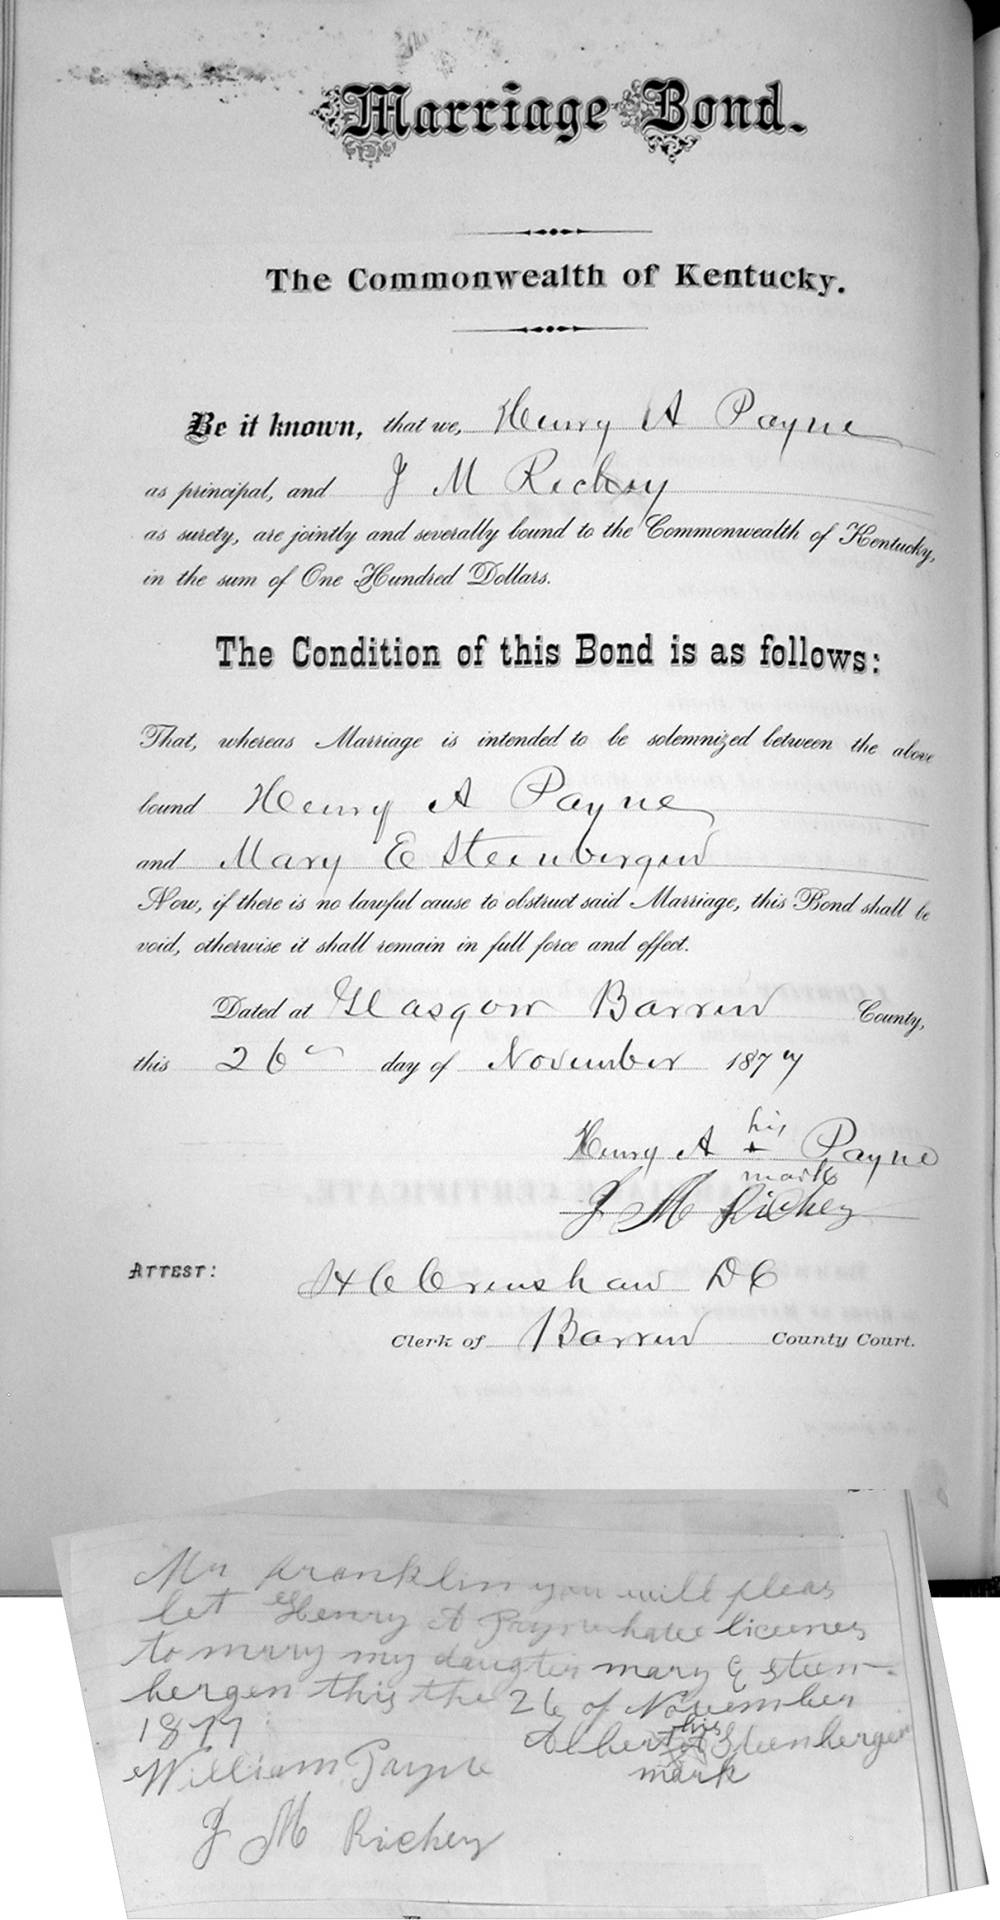 Marriage Bond.
The Commonwealth of Kentucky.
Be it known, that we, Henry A Payne
as principal, and J M Richey
as surety, are jointly and severally bound to the Commonwealth of Kentucky,
in the sum of One Hundred Dollars.
The Condition of this Bond is as follows:
That, whereas Marriage is intended to be solemnized between the above
bound Henry A Payne
and Mary E Steenbergen
Now, if there is no lawful cause to obstruct said Marriage, this Bond shall be
void, otherwise it shall remain in full force and effect.
Dated at Glasgow Barren County,
this 26th day of November 1877
his
Henry A + Payne
mark
J M Richey
ATTEST: H C Crenshaw D C
Clerk of Barren County Court.
Mr Franklin you will pleas
let Henry A Payne have licenes
to mrry my daugter mary E steen-
bergen this the 26 of November
1877
his
Albert + Steenbergen
mark
William Payne
J M Richey